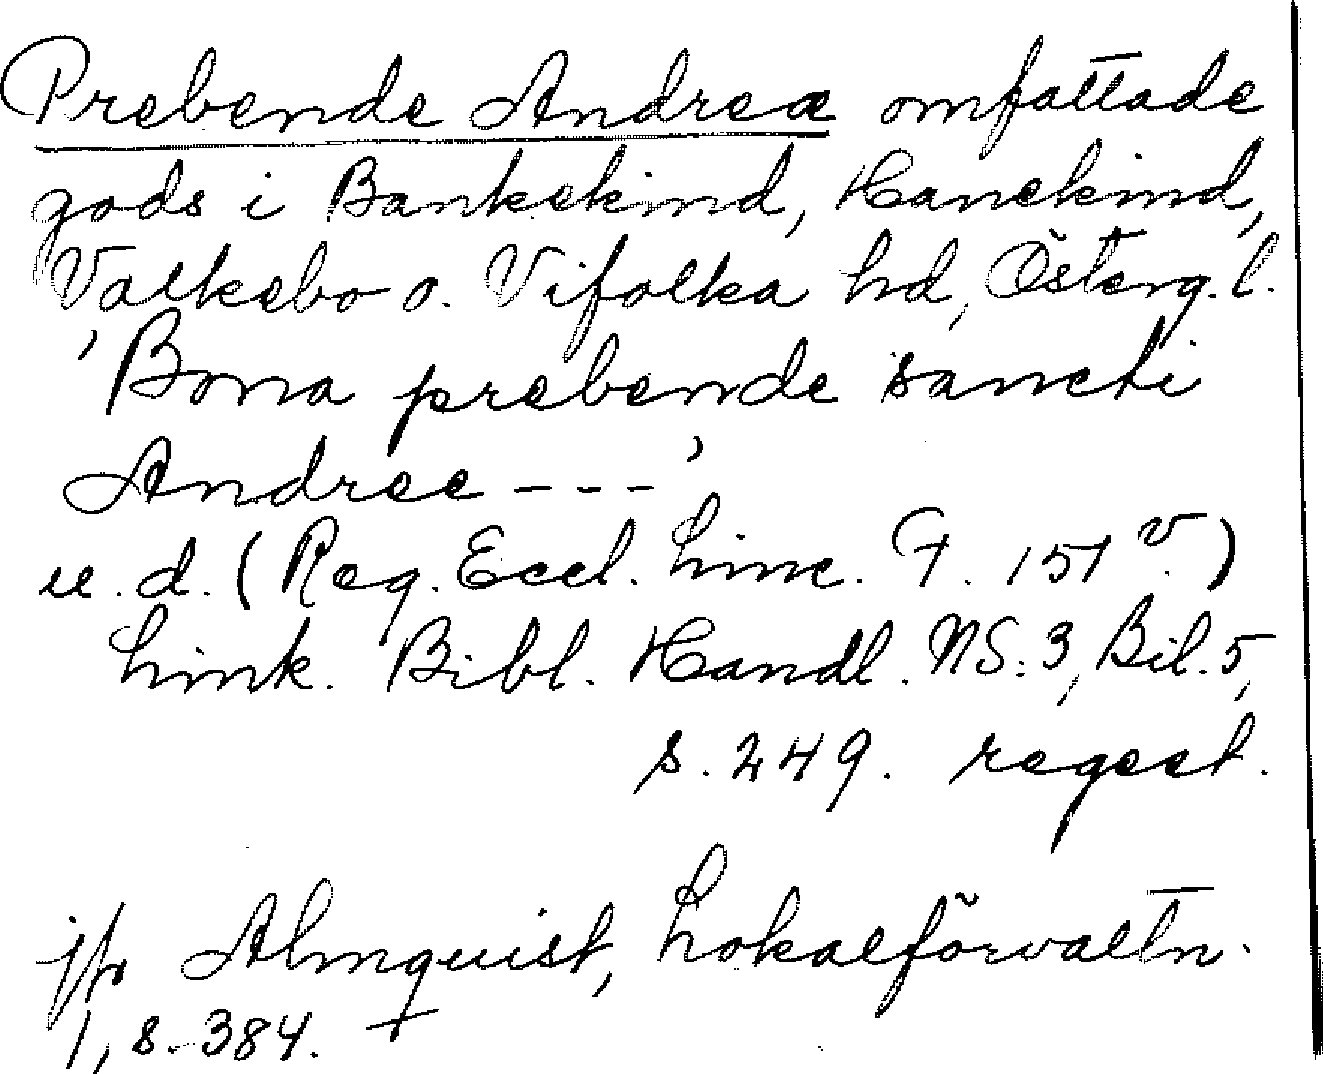 Prebende Andreæ omfattade
gods i Bankekind, Hanekind,
Valkebo o. Vifolka hd, Österg. l.
'Bona prebende sancti
Andree - - - '
u. d. (Reg. Eccl. Linc. F. 151 v.)
Link. Bibl. Handl. NS. 3, Bil. 5,
s. 249. regest.
jfr Almquist, Lokalförvaltn.
1, s. 384. +